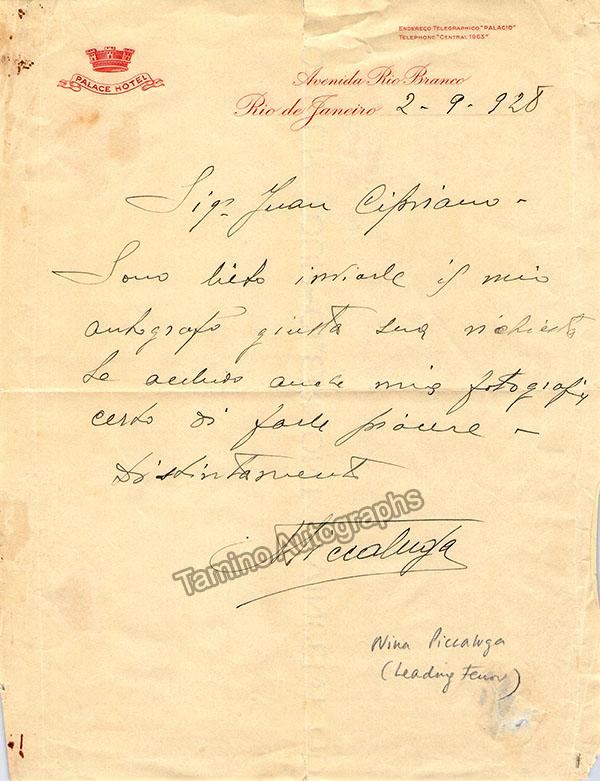 ENDEREÇO TELEGRAPHICO "PALACIO"
TELEPHONE "CENTRAL 1963"
PALACE HOTEL
Avenida Rio Branco
Rio de Janeiro 2-9-928
Sigr Juan Cipriano -
Sono lieto inviarle il mio
autografo giusta sua richiesta
Le accludo anche mia fotografia
certo di farle piacere -
Distintamente
Piccaluga
Tamino Autographs
Nina Piccaluga
(Leading Tenor)